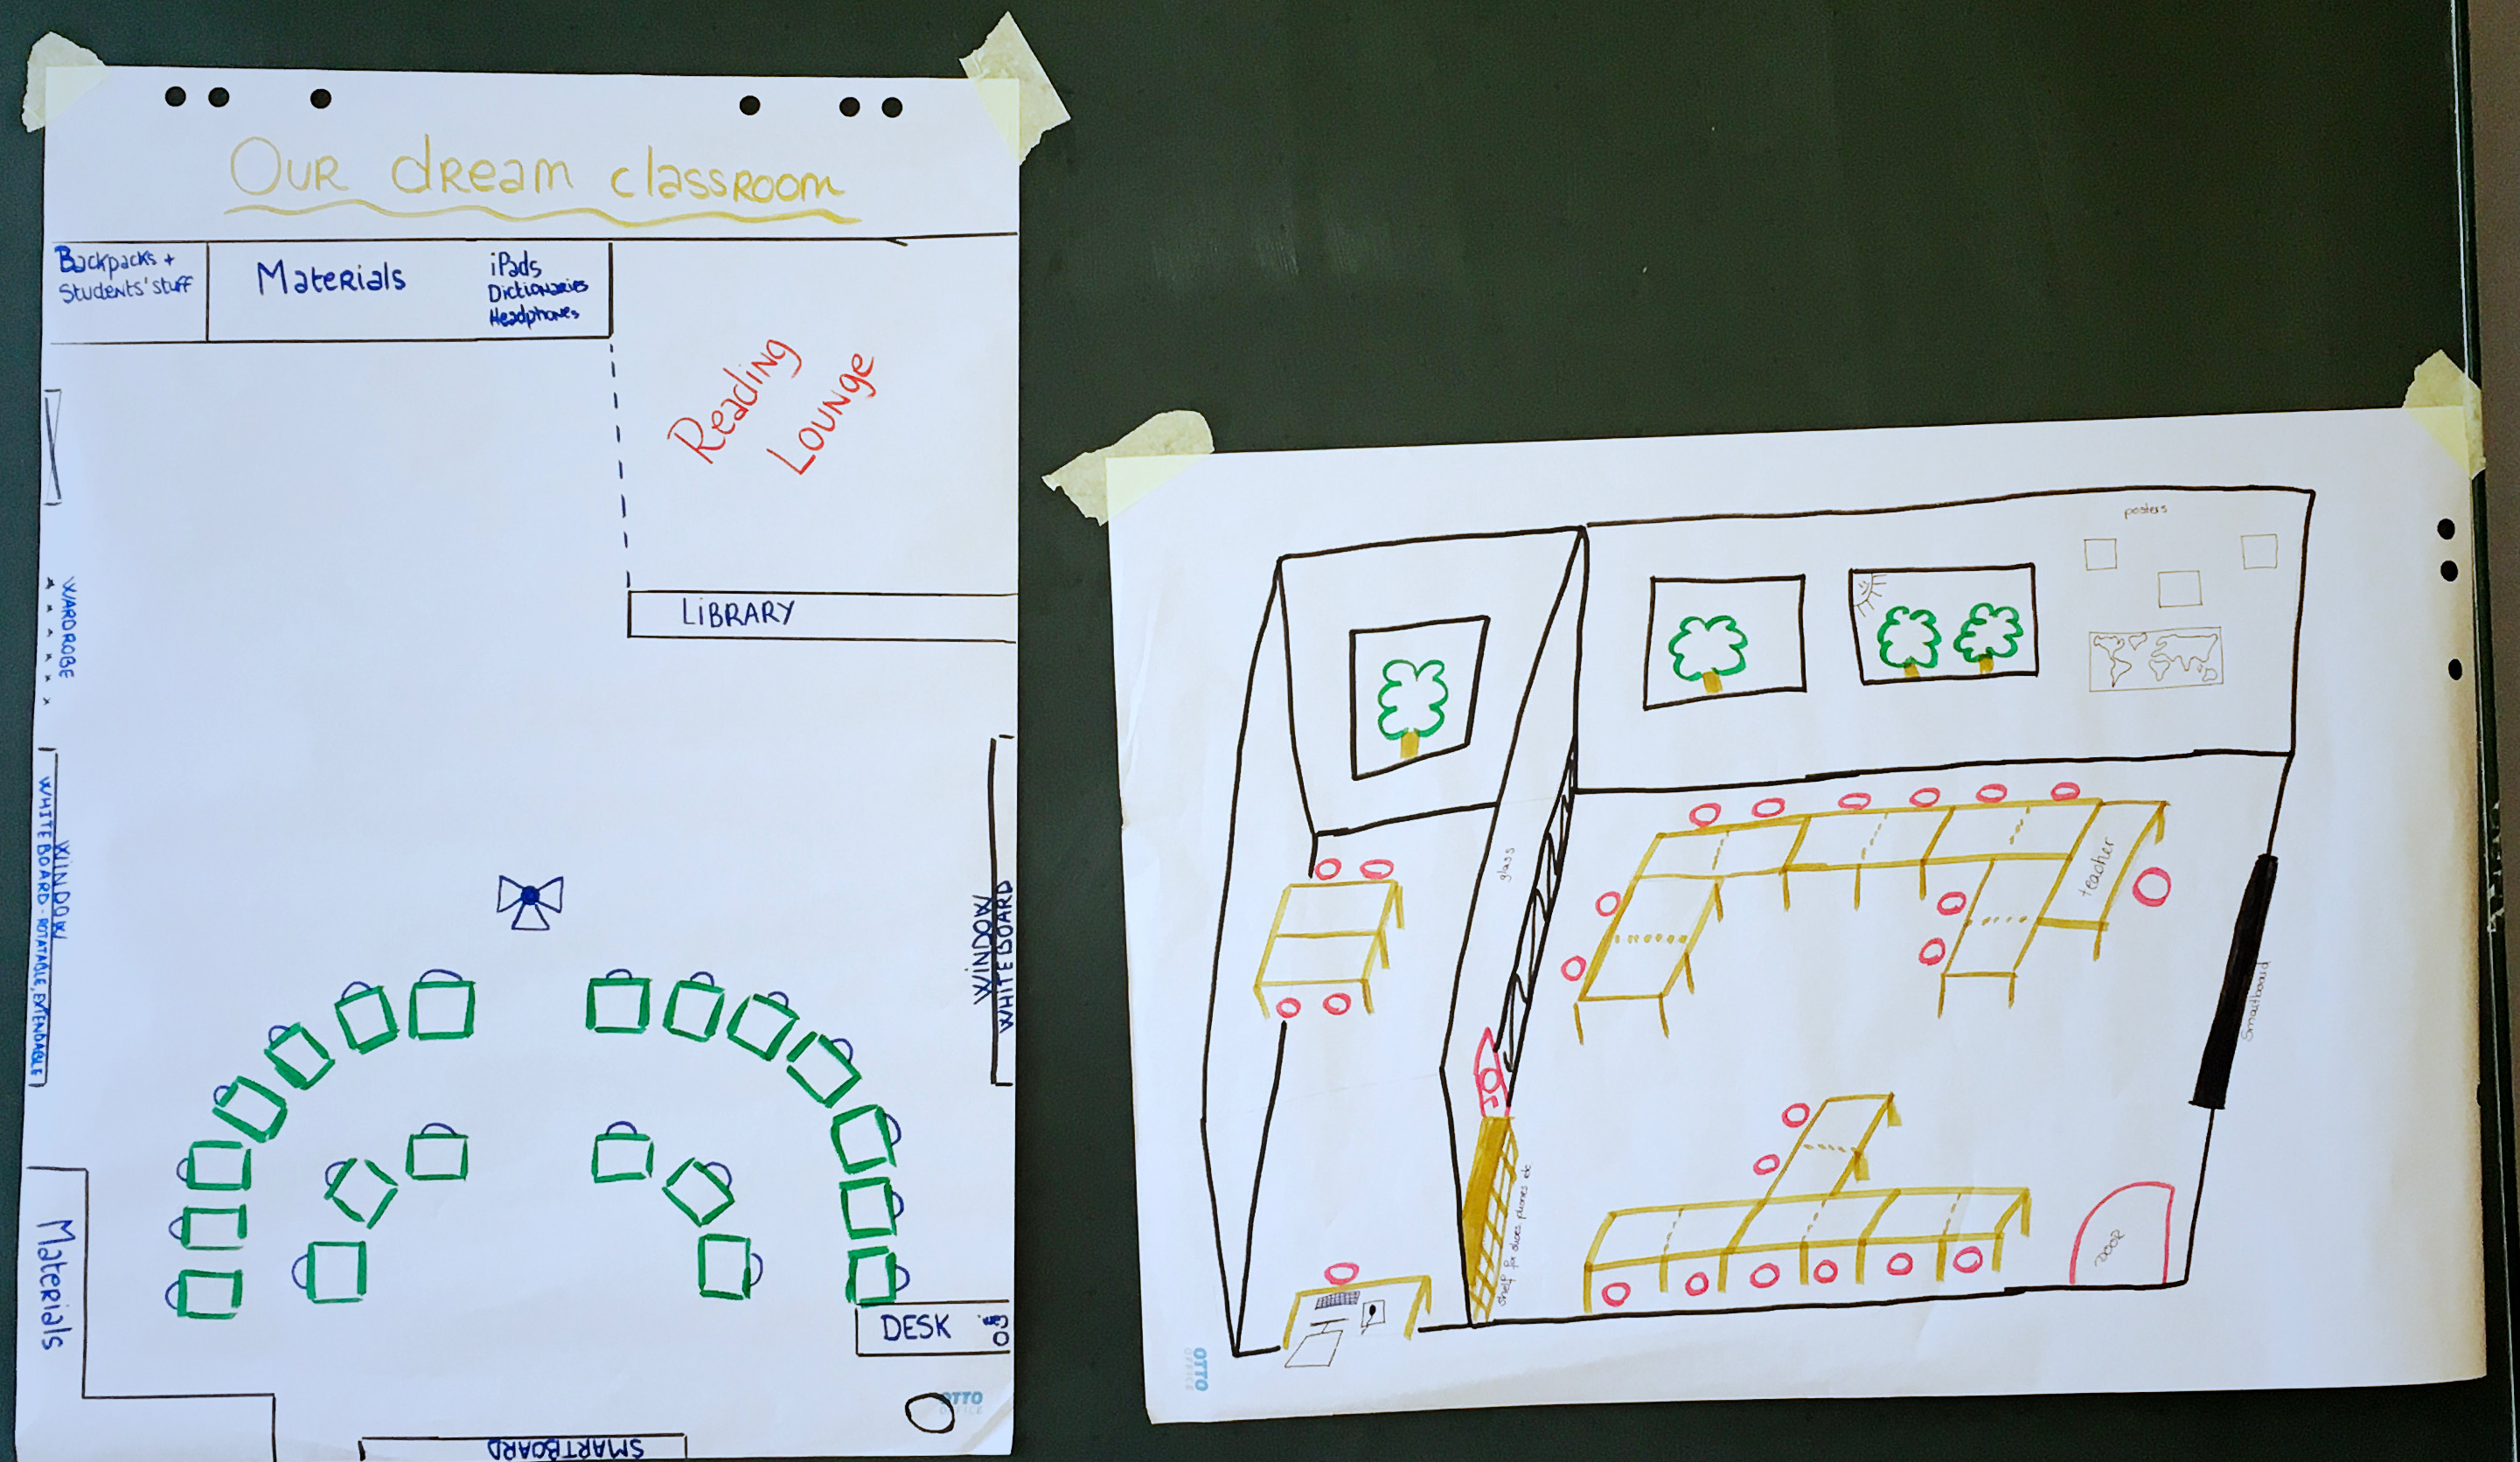 Our dream classroom
Backpacks +
Students' stuff
Materials
iPads
Dictionaries
Headphones
Reading
Lounge
LIBRARY
WARDROBE
WINDOW
WHITEBOARD - ROTATABLE, EXTENDABLE
WINDOW
WHITEBOARD
Materials
DESK
SMARTBOARD
OTTO
OFFICE
posters
glass
teacher
Smartboard
shelf for shoes phones etc
DOOR
OTTO
OFFICE